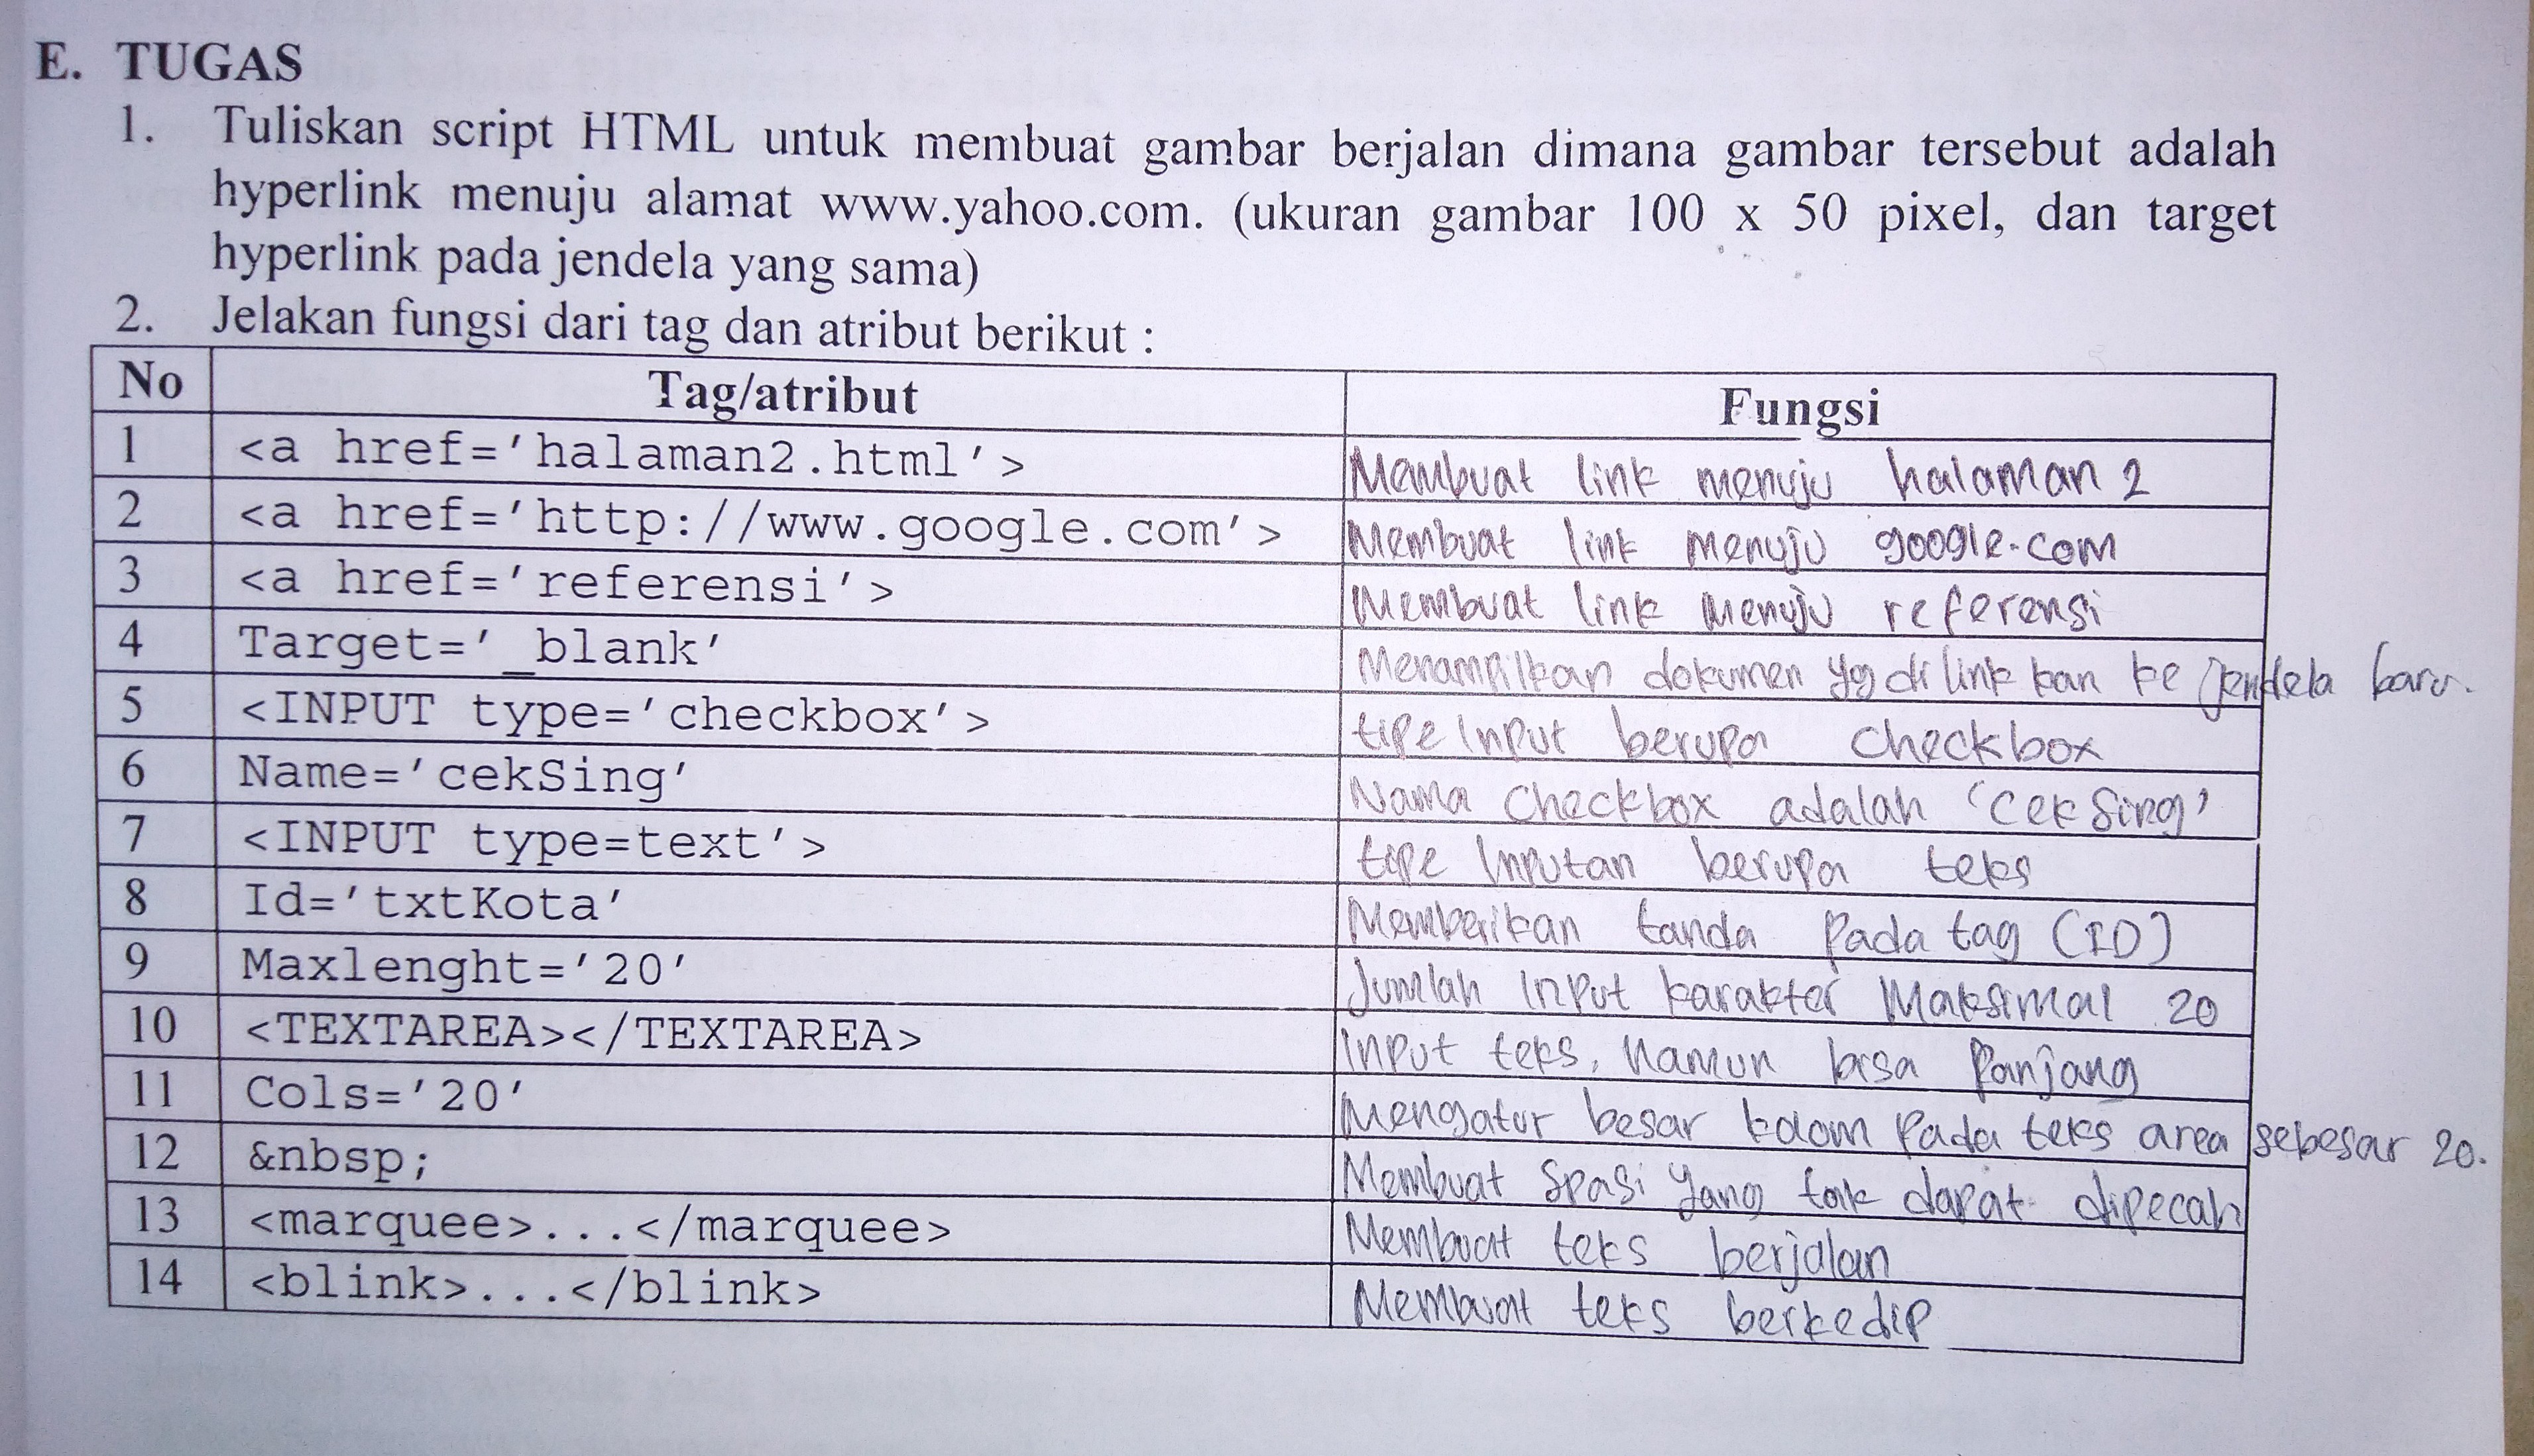 E. TUGAS
1. Tuliskan script HTML untuk membuat gambar berjalan dimana gambar tersebut adalah
hyperlink menuju alamat www.yahoo.com. (ukuran gambar 100 x 50 pixel, dan target
hyperlink pada jendela yang sama)
2. Jelakan fungsi dari tag dan atribut berikut :
No Tag/atribut Fungsi
1 <a href='halaman2.html'> Membuat link menuju halaman 2
2 <a href='http://www.google.com'> Membuat link menuju google.com
3 <a href='referensi'> Membuat link menuju referensi
4 Target='_blank' Menampilkan dokumen yg di link kan ke jendela baru.
5 <INPUT type='checkbox'> tipe Input berupa checkbox
6 Name='cekSing' Nama checkbox adalah 'cekSing'
7 <INPUT type=text'> tipe Inputan berupa teks
8 Id='txtKota' Memberikan tanda pada tag (ID)
9 Maxlenght='20' Jumlah Input karakter Maksimal 20
10 <TEXTAREA></TEXTAREA> Input teks, namun bisa panjang
11 Cols='20' Mengatur besar kolom pada teks area sebesar 20.
12 &nbsp; Membuat spasi yang tak dapat dipecah
13 <marquee>...</marquee> Membuat teks berjalan
14 <blink>...</blink> Membuat teks berkedip